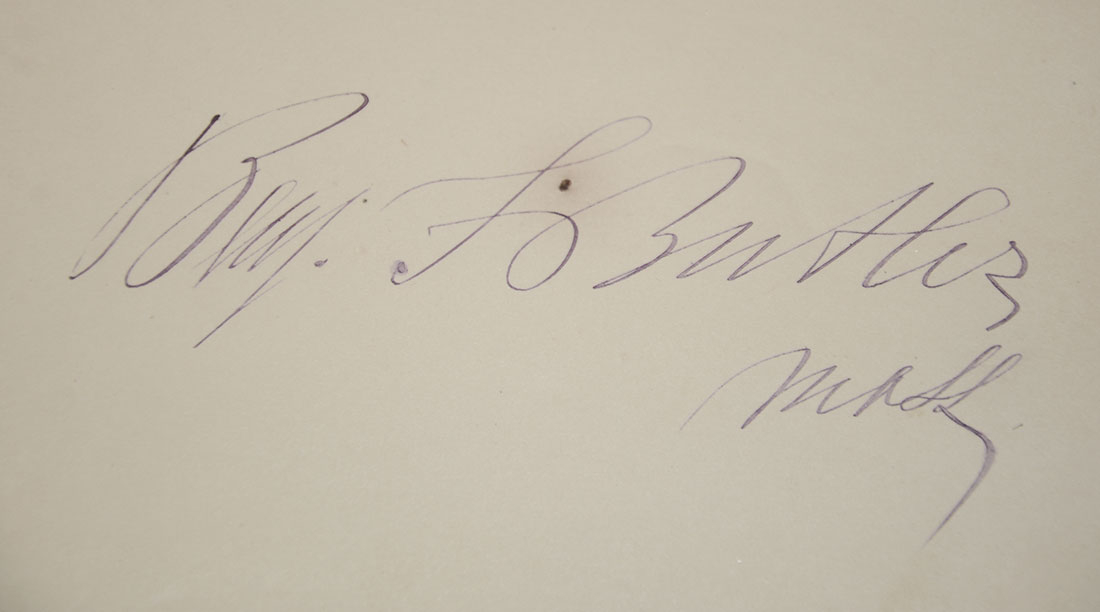 Benj. F Butler
Mass.